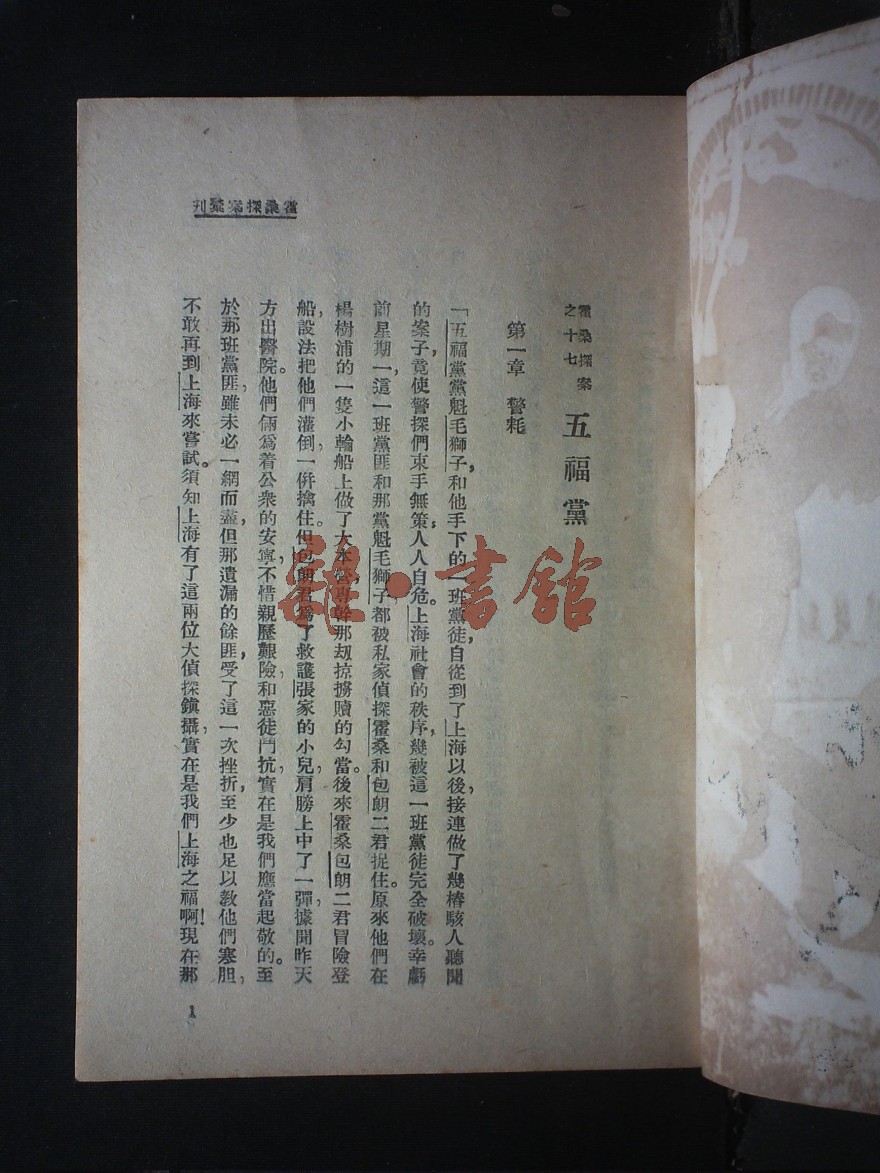 霍桑探案彙刊
霍桑探案
之十七
五福黨
第一章 警耗
「五福黨黨魁毛獅子，和他手下的一班黨徒，自從到了上海以後，接連做了幾樁駭人聽聞
的案子，竟使警探們束手無策，人人自危。上海社會的秩序，幾被這一班黨徒完全破壞。幸虧
前星期一，這一班黨匪和那黨魁毛獅子，都被私家偵探霍桑和包朗二君捉住。原來他們在
楊樹浦的一隻小輪船上做了大本營，專幹那刼掠擄贖的勾當。後來霍桑包朗二君冒險登
船，設法把他們灌倒，一併擒住。但包朗君爲了救護張家的小兒，肩膀上中了一彈，據聞昨天
方出醫院。他們倆爲着公衆的安寧，不惜親歷艱險，和惡徒鬥抗，實在是我們應當起敬的。至
於那班黨匪，雖未必一網而盡，但那遺漏的餘匪，受了這一次挫折，至少也足以教他們寒胆，
不敢再到上海來嘗試。須知上海有了這兩位大偵探鎭攝，實在是我們上海之福啊！現在那
1
雜·書館